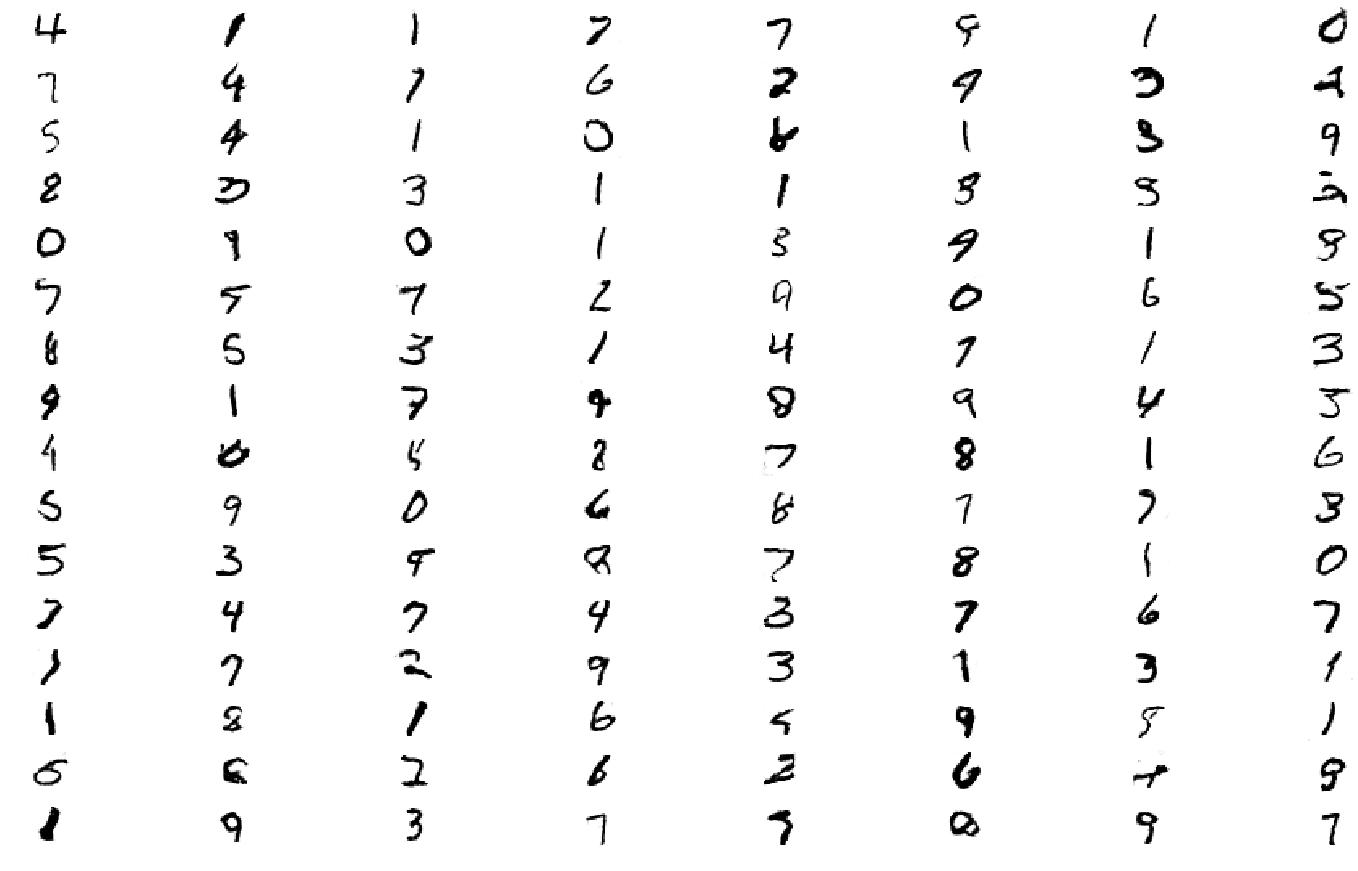 4 1 1 7 7 9 1 0
7 4 7 6 2 9 3 4
5 4 1 0 6 1 8 9
8 3 1 1 8 9
0 9 0 1 3 9 1 9
7 5 7 2 9 0 6 5
8 5 3 1 4 7 1 3
9 1 7 9 8 9 4 5
4 0 5 8 7 8 1 6
5 9 0 6 8 7 7 3
5 3 9 8 7 8 1 0
7 4 7 4 3 7 6 7
1 7 2 9 3 1 3 1
1 8 1 6 5 9 8 1
5 6 2 6 2 6 9
1 9 3 7 9 8 9 7